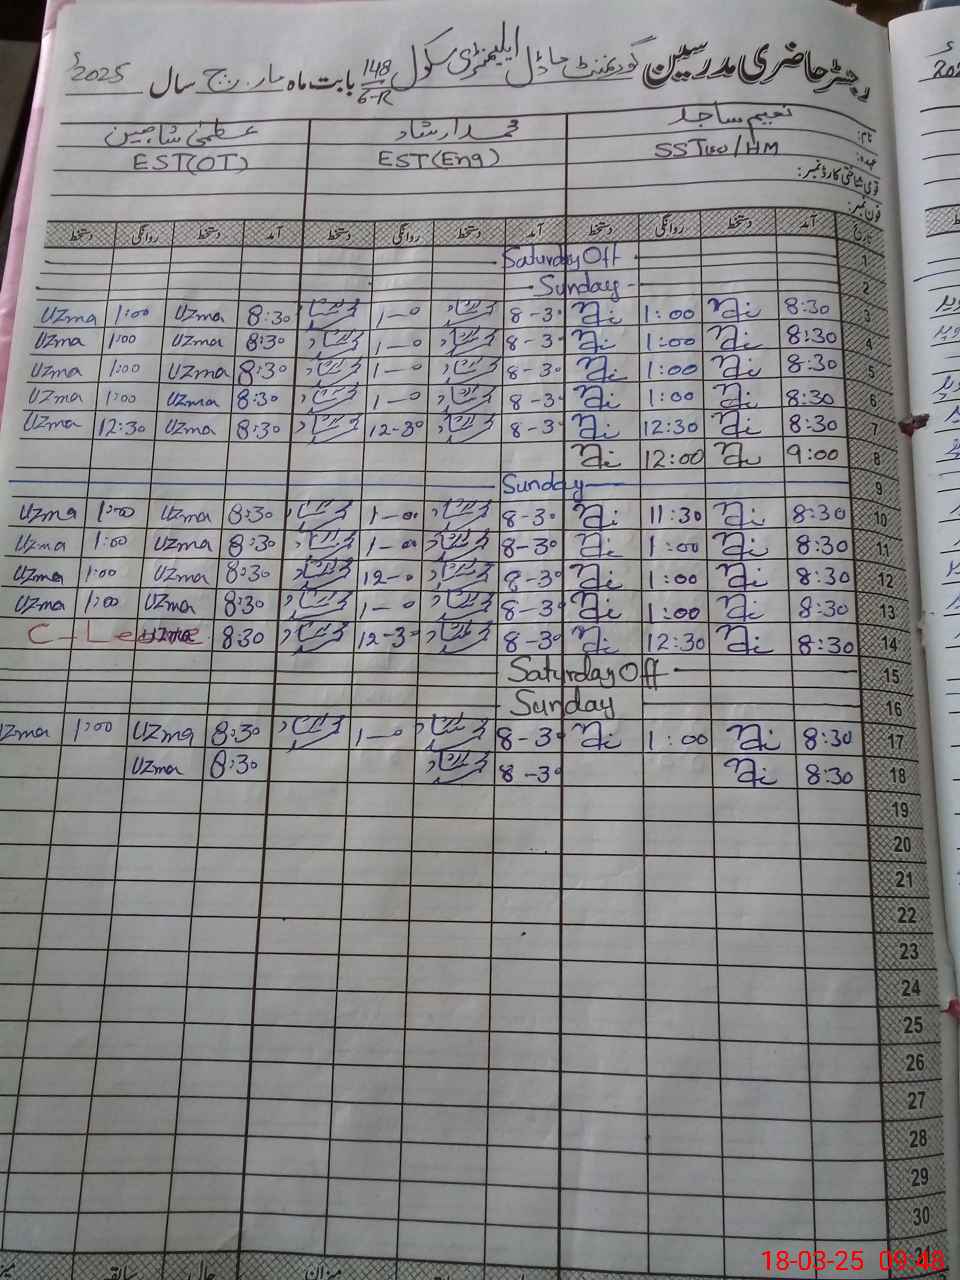 رجسٹر حاضری مدرسین گورنمنٹ ماڈل ایلیمنٹری سکول 148/6-R بابت ماہ مارچ سال 2025ء
نام: نعیم ساجد محمد ارشاد عظمیٰ شاہین
عہدہ: SST / HM EST (Eng) EST(OT)
قومی شناختی کارڈ نمبر:
فون نمبر:
تاریخ آمد دستخط روانگی دستخط آمد دستخط روانگی دستخط آمد دستخط روانگی دستخط
1 Saturday Off
2 Sunday
3 8:30 1:00 8-30 1-0 8:30 Uzma 1:00 Uzma
4 8:30 1:00 8-30 1-0 8:30 Uzma 1:00 Uzma
5 8:30 1:00 8-30 1-0 8:30 Uzma 1:00 Uzma
6 8:30 1:00 8-30 1-0 8:30 Uzma 1:00 Uzma
7 8:30 12:30 8-30 12-30 8:30 Uzma 12:30 Uzma
8 9:00 12:00
9 Sunday
10 8:30 11:30 8-30 1-00 8:30 Uzma 1:00 Uzma
11 8:30 1:00 8-30 1-00 8:30 Uzma 1:00 Uzma
12 8:30 1:00 8-30 12-0 8:30 Uzma 1:00 Uzma
13 8:30 1:00 8-30 1-0 8:30 Uzma 1:00 Uzma
14 8:30 12:30 8-30 12-30 8:30 C-Leave
15 Saturday Off
16 Sunday
17 8:30 1:00 8-30 1-0 8:30 Uzma 1:00 Uzma
18 8:30 8-30 8:30 Uzma
19
20
21
22
23
24
25
26
27
28
29
30
31
میزان سابقہ حال میزان سابقہ
18-03-25 09:48